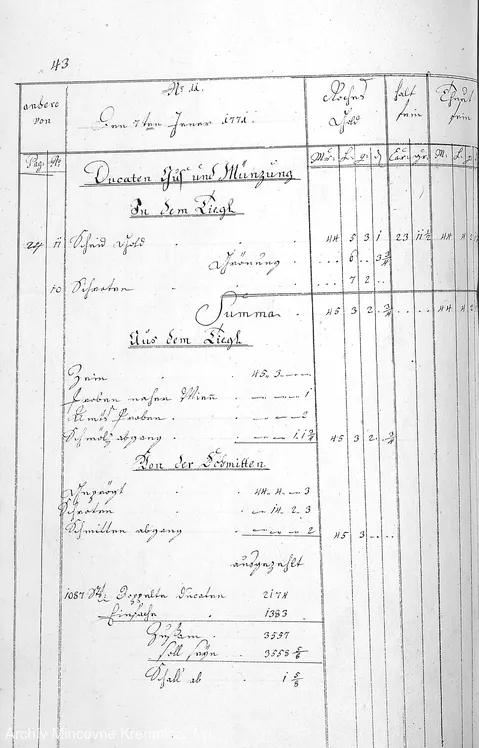 43
No. 11.
Den 7ten Jener 1771.
andere
von
Pag: No
Roches
Gold
halt
fein
fein
Mr. L. q. d Car: gr. M. L. q
Ducaten Guß und Münzung
In dem Tiegl
24 11 Scheid Gold . . . 44 5 3 1 23 11½ 44 4 2
6 . . 3¾
10 Schroten . . . 7 2 . .
Summa . 45 3 2 . ¾ . . . . 44 4 2
Aus dem Tiegl
Zein . 45. 3. — —
Proben nacher Wien . — — — 1
Amts Proben . . — — — 2
Schmölz abgang . . — — 1. 1¾ 45 3 2 . ¾
Von der Schmitten
Gepregt . . 44. 4. — 3
Schroten . . — 14. 2. 3
Schmitten abgang . — — — 2 45 3 . . .
ausgezehlt
1087 Stk: Doppelte Ducaten 2174
Einfache . 1383
Zusam . 3557
soll seyn . 3558 ⅝
Schall ab . 1 ⅝
Archiv Mincovne Kremnica, š.p.